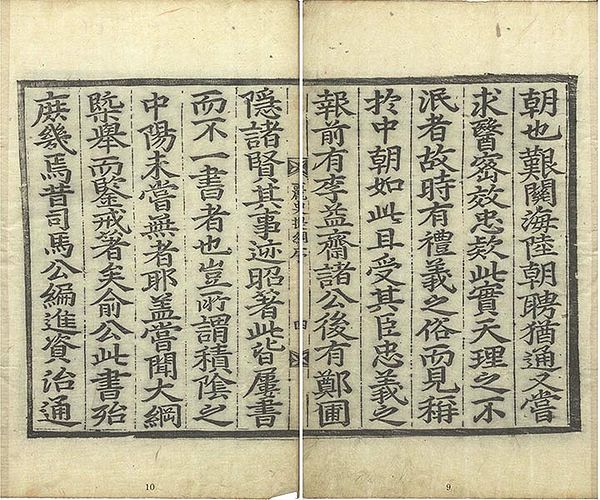 朝也艱關海陸朝聘猶通又嘗
求醫密效忠欵此實天理之不
泯者故時有禮義之俗而見稱
扵中朝如此且受其臣忠義之
報前有李益齋諸公後有鄭圃
麗史提綱序 四
隱諸賢其事迹昭著此皆屢書
而不一書者也豈所謂積陰之
中陽未嘗無者耶盖嘗聞大綱
槩舉而鑒戒著矣俞公此書殆
庶幾焉昔司馬公編進資治通
9
10